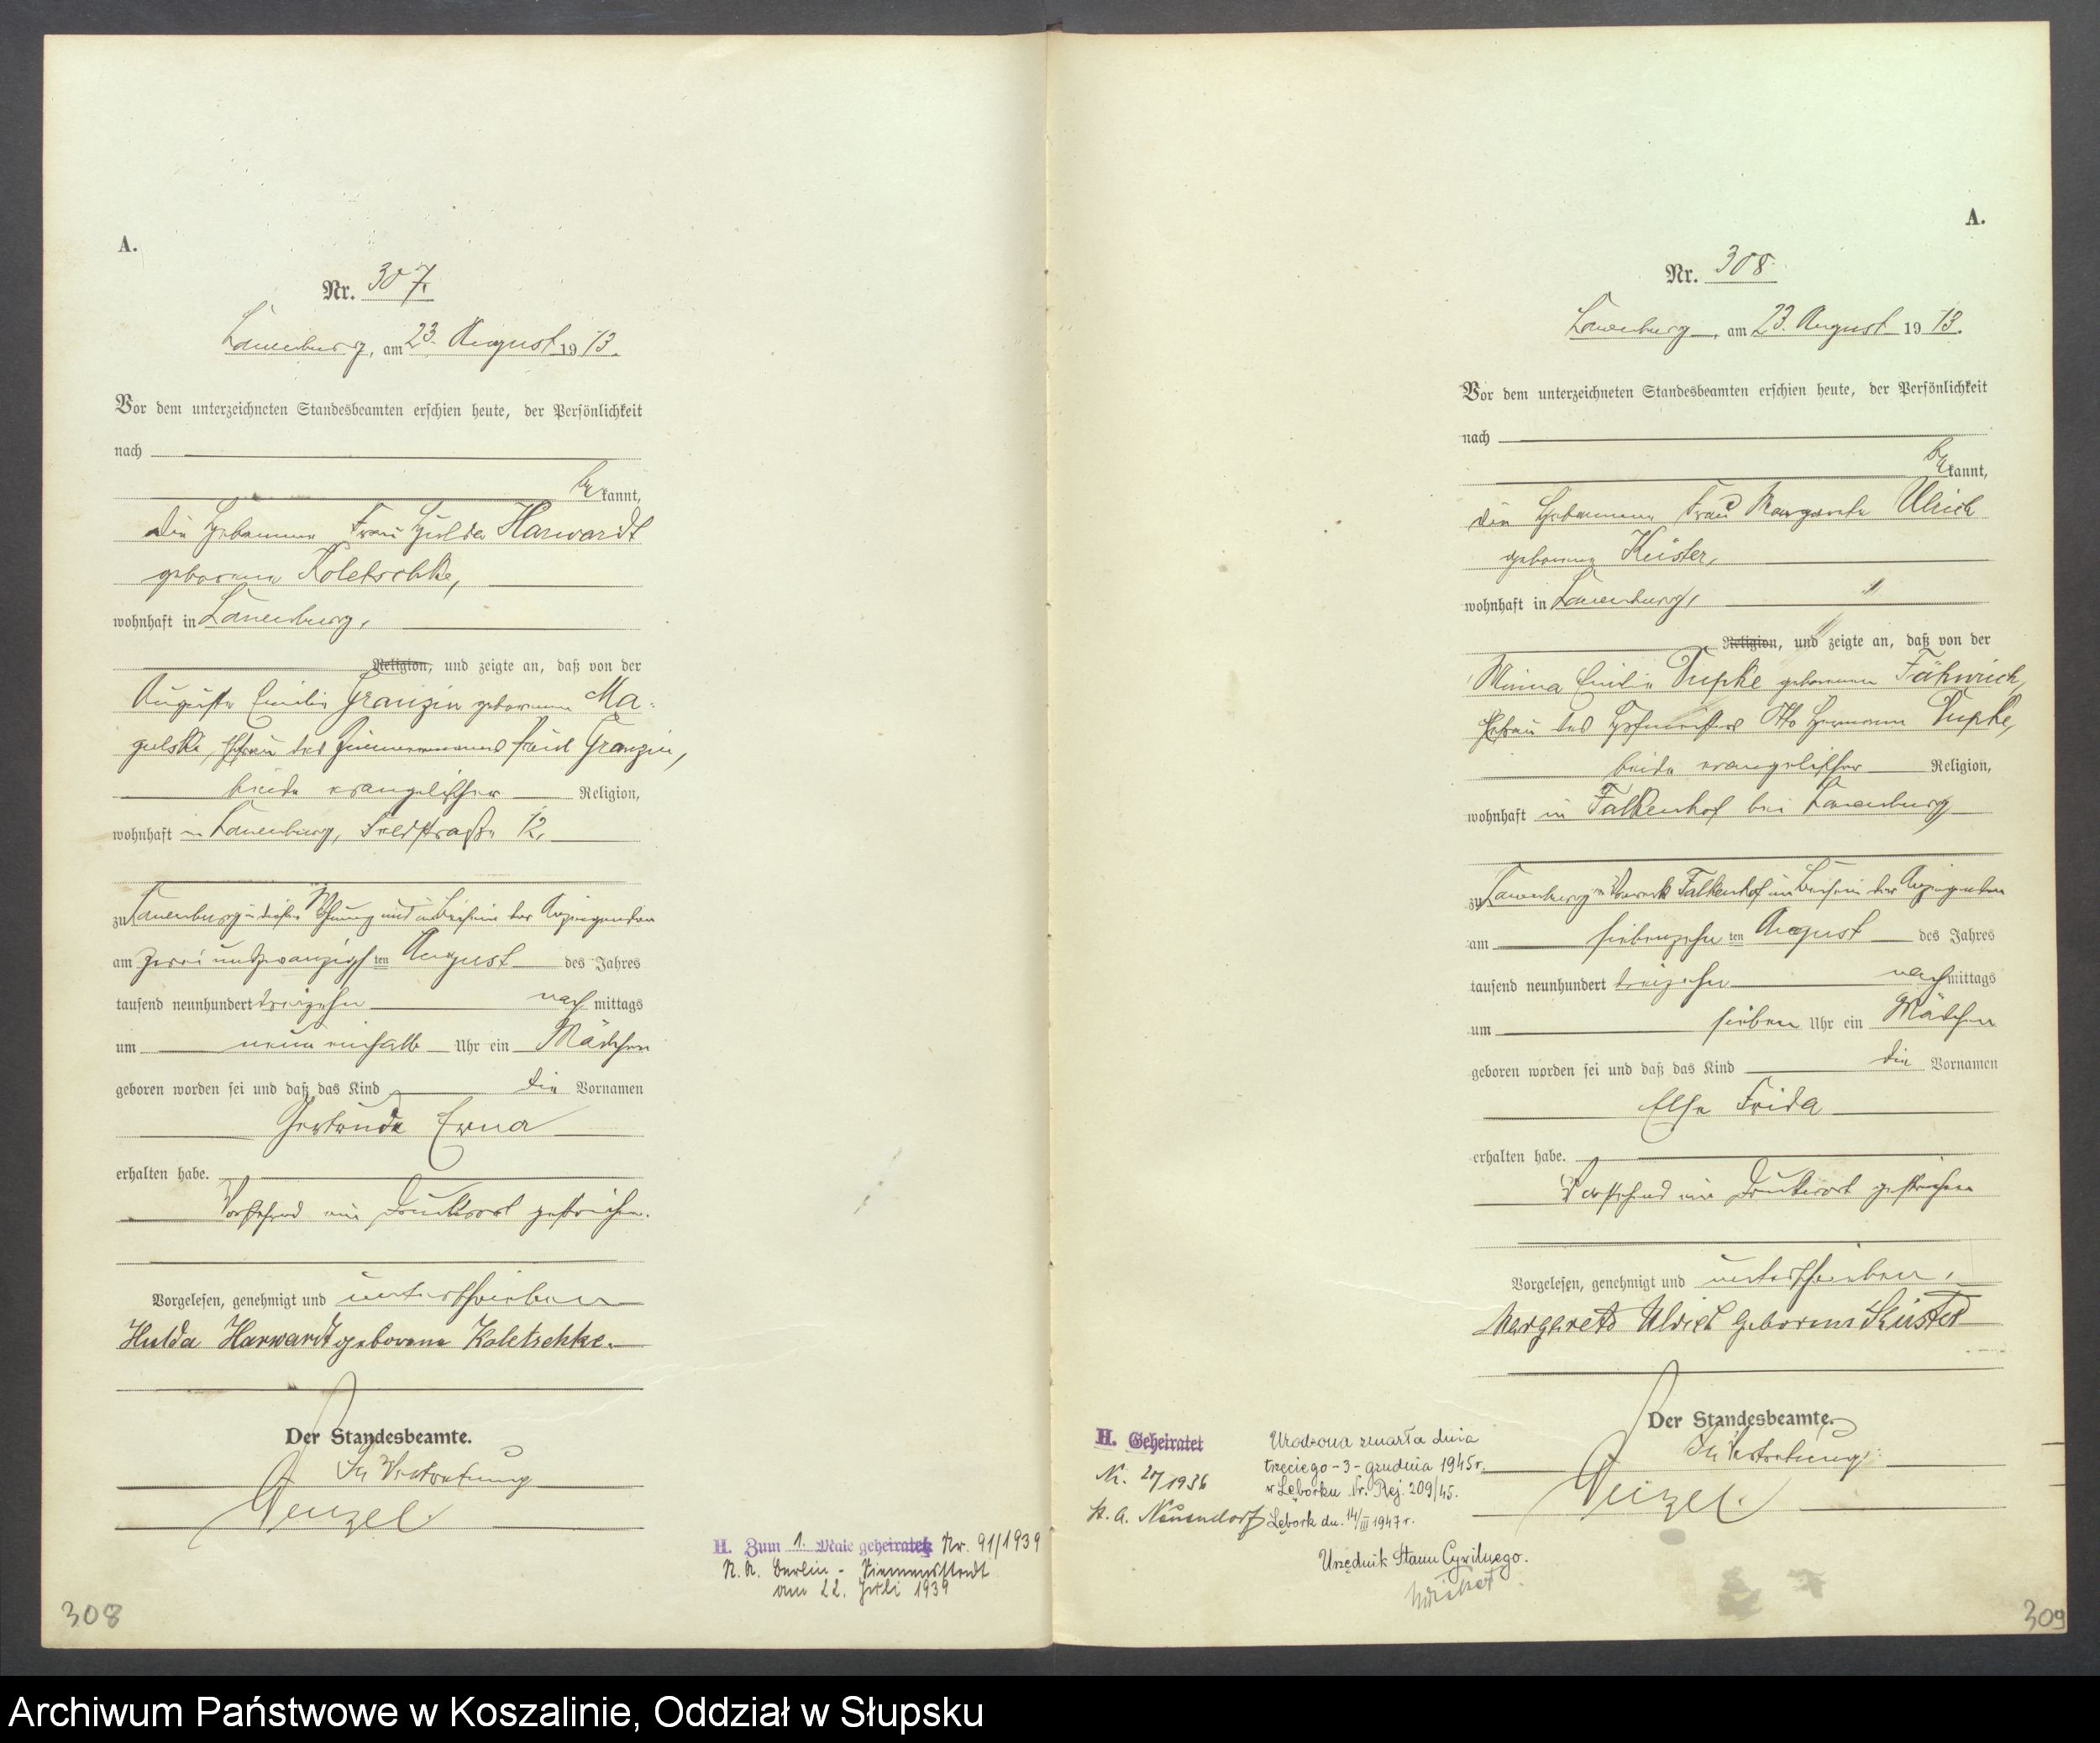 A.
Nr. 307.
Lauenburg, am 23. August 1913.
Vor dem unterzeichneten Standesbeamten erschien heute, der Persönlichkeit
nach
bekannt,
die Hebamme Frau Hulda Harwardt
geborene Koletschke,
wohnhaft in Lauenburg,
Religion, und zeigte an, daß von der
Auguste Emilie Granzin geborenen Ma-
gulski, Ehefrau des Zimmermanns Paul Granzin,
beide evangelischer Religion,
wohnhaft in Lauenburg, Feldstraße 12,
zu Lauenburg in dieser Wohnung und im Beisein der Anzeigenden
am zweiundzwanzigsten August des Jahres
tausend neunhundert dreizehn nachmittags
um neun einhalb Uhr ein Mädchen
geboren worden sei und daß das Kind die Vornamen
Gertrude Erna
erhalten habe.
Vorstehend ein Druckwort gestrichen.
Vorgelesen, genehmigt und unterschrieben
Hulda Harwardt geborene Koletschke.
Der Standesbeamte.
In Vertretung
Wenzel.
H. Zum 1. Male geheiratet Nr. 91/1939
Berlin - Siemensstadt
am 22. Juli 1939
308
A.
Nr. 308
Lauenburg, am 23. August 1913.
Vor dem unterzeichneten Standesbeamten erschien heute, der Persönlichkeit
nach
bekannt,
die Hebamme Frau Margarete Ulrich
geborene Küster,
wohnhaft in Lauenburg,
Religion, und zeigte an, daß von der
Minna Emilie Pupke geborenen Fähnrich,
Ehefrau des Hofmeisters Otto Hermann Pupke,
beide evangelischer Religion,
wohnhaft in Falkenhof bei Lauenburg
zu Lauenburg in Vorwerk Falkenhof im Beisein der Anzeigenden
am siebenzehnten August des Jahres
tausend neunhundert dreizehn nachmittags
um sieben Uhr ein Mädchen
geboren worden sei und daß das Kind die Vornamen
Else Frida
erhalten habe.
Vorstehend ein Druckwort gestrichen
Vorgelesen, genehmigt und unterschrieben,
Margarete Ulrich geborene Küster
Der Standesbeamte.
In Vertretung:
Wenzel.
H. Geheiratet
Nr. 20/1936
St. A. Neuendorf
Urodzona zmarła dnia
trzeciego - 3 - grudnia 1945 r.
w Lęborku Nr. Rej. 209/45.
Lębork dn. 14/III 1947 r.
Urzędnik Stanu Cywilnego.
309
Archiwum Państwowe w Koszalinie, Oddział w Słupsku